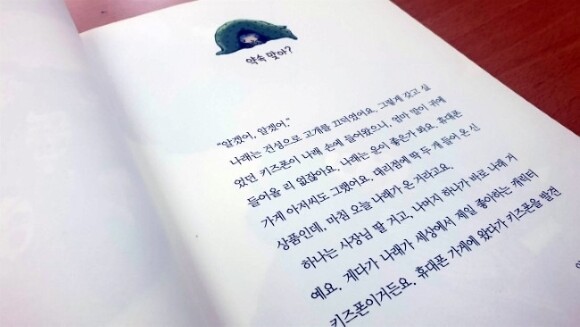 약속 맞아?
"알겠어, 알겠어."
나래는 건성으로 고개를 끄덕였어요. 그렇게 갖고 싶
었던 키즈폰이 나래 손에 들어왔으니, 엄마 말이 귀에
들어올 리 없잖아요. 나래는 운이 좋은가 봐요. 휴대폰
가게 아저씨도 그랬어요. 대리점에 딱 두 개 들어온 신
상품인데, 마침 오늘 나래가 온 거라고요.
하나는 사장님 딸 거고, 나머지 하나가 바로 나래 거
예요. 게다가 나래가 세상에서 제일 좋아하는 캐릭터
키즈폰이거든요. 휴대폰 가게에 왔다가 키즈폰을 발견